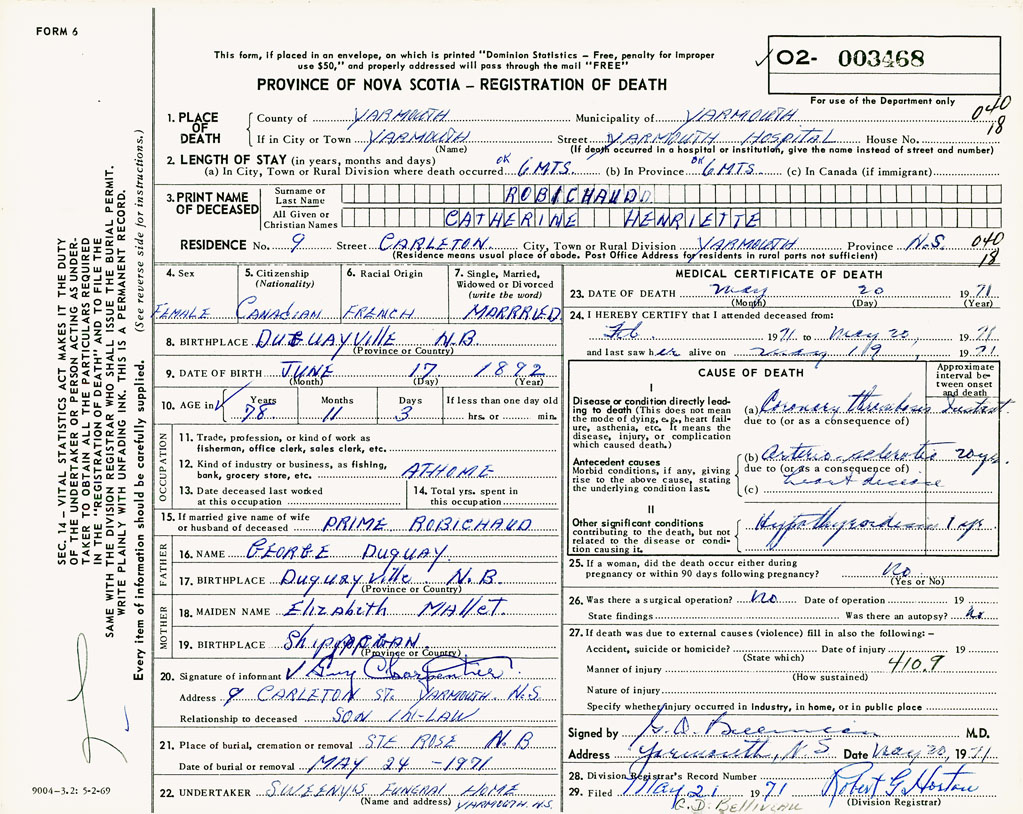 FORM 6
This form, if placed in an envelope, on which is printed "Dominion Statistics – Free, penalty for improper
use $50," and properly addressed will pass through the mail "FREE"
✓ 02- 003468
PROVINCE OF NOVA SCOTIA – REGISTRATION OF DEATH
For use of the Department only
040
18
1. PLACE OF DEATH County of YARMOUTH Municipality of YARMOUTH
If in City or Town YARMOUTH Street YARMOUTH HOSPITAL House No.
(Name) (If death occurred in a hospital or institution, give the name instead of street and number)
2. LENGTH OF STAY (in years, months and days)
(a) In City, Town or Rural Division where death occurred OK 6 MTS. (b) In Province OK 6 MTS. (c) In Canada (if immigrant)
3. PRINT NAME OF DECEASED Surname or Last Name ROBICHAUD
All Given or Christian Names CATHERINE HENRIETTE
RESIDENCE No. 9 Street CARLETON City, Town or Rural Division YARMOUTH Province N.S. 040
18
(Residence means usual place of abode. Post Office Address for residents in rural parts not sufficient)
4. Sex 5. Citizenship (Nationality) 6. Racial Origin 7. Single, Married, Widowed or Divorced (write the word)
FEMALE CANADIAN FRENCH MARRRIED
8. BIRTHPLACE DUGUAYVILLE N.B.
(Province or Country)
9. DATE OF BIRTH JUNE 17 1892
(Month) (Day) (Year)
10. AGE in ✓ Years 78 Months 11 Days 3 If less than one day old hrs. or min.
OCCUPATION
11. Trade, profession, or kind of work as
fisherman, office clerk, sales clerk, etc.
12. Kind of industry or business, as fishing,
bank, grocery store, etc. AT HOME
13. Date deceased last worked
at this occupation
14. Total yrs. spent in
this occupation
15. If married give name of wife
or husband of deceased PRIME ROBICHAUD
FATHER
16. NAME GEORGE DUGUAY
17. BIRTHPLACE DUGUAYVILLE N.B.
(Province or Country)
MOTHER
18. MAIDEN NAME ELIZABETH MALLET
19. BIRTHPLACE SHIPPAGAN
(Province or Country)
20. Signature of informant ✓ Guy Charpentier
Address 9 CARLETON ST. YARMOUTH. N.S
Relationship to deceased SON IN-LAW
21. Place of burial, cremation or removal STE ROSE N.B
Date of burial or removal MAY 24 - 1971
22. UNDERTAKER SWEENY'S FUNERAL HOME
(Name and address) YARMOUTH. N.S.
MEDICAL CERTIFICATE OF DEATH
23. DATE OF DEATH May 20 1971
(Month) (Day) (Year)
24. I HEREBY CERTIFY that I attended deceased from:
Feb. 1971 to May 20, 1971
and last saw her alive on May 19, 1971
CAUSE OF DEATH
Approximate interval between onset and death
I
Disease or condition directly leading to death (This does not mean the mode of dying, e.g., heart failure, asthenia, etc. It means the disease, injury, or complication which caused death.)
(a) Coronary thrombosis Instant
due to (or as a consequence of)
Antecedent causes
Morbid conditions, if any, giving rise to the above cause, stating the underlying condition last.
(b) Arterio-sclerotic 20 yrs.
due to (or as a consequence of)
(c) heart disease
II
Other significant conditions
contributing to the death, but not related to the disease or condition causing it.
Hypothyroidism 1 yr.
25. If a woman, did the death occur either during
pregnancy or within 90 days following pregnancy? No
(Yes or No)
26. Was there a surgical operation? No Date of operation 19
State findings Was there an autopsy? No
27. If death was due to external causes (violence) fill in also the following: –
Accident, suicide or homicide? Date of injury 19
(State which)
Manner of injury 410.9
(How sustained)
Nature of injury
Specify whether injury occurred in industry, in home, or in public place
Signed by G. D. Belliveau M.D.
Address Yarmouth, N.S Date May 20, 1971
28. Division Registrar's Record Number
29. Filed May 21 1971 Robert G. Horton
(Division Registrar)
G. D. Belliveau
SEC. 14 – VITAL STATISTICS ACT MAKES IT THE DUTY
OF THE UNDERTAKER OR PERSON ACTING AS UNDER-
TAKER TO OBTAIN ALL THE PARTICULARS REQUIRED
IN THE "REGISTRATION OF DEATH" AND TO FILE THE
SAME WITH THE DIVISION REGISTRAR WHO SHALL ISSUE THE BURIAL PERMIT.
WRITE PLAINLY WITH UNFADING INK. THIS IS A PERMANENT RECORD.
Every item of information should be carefully supplied. (See reverse side for instructions.)
9004-3.2: 5-2-69